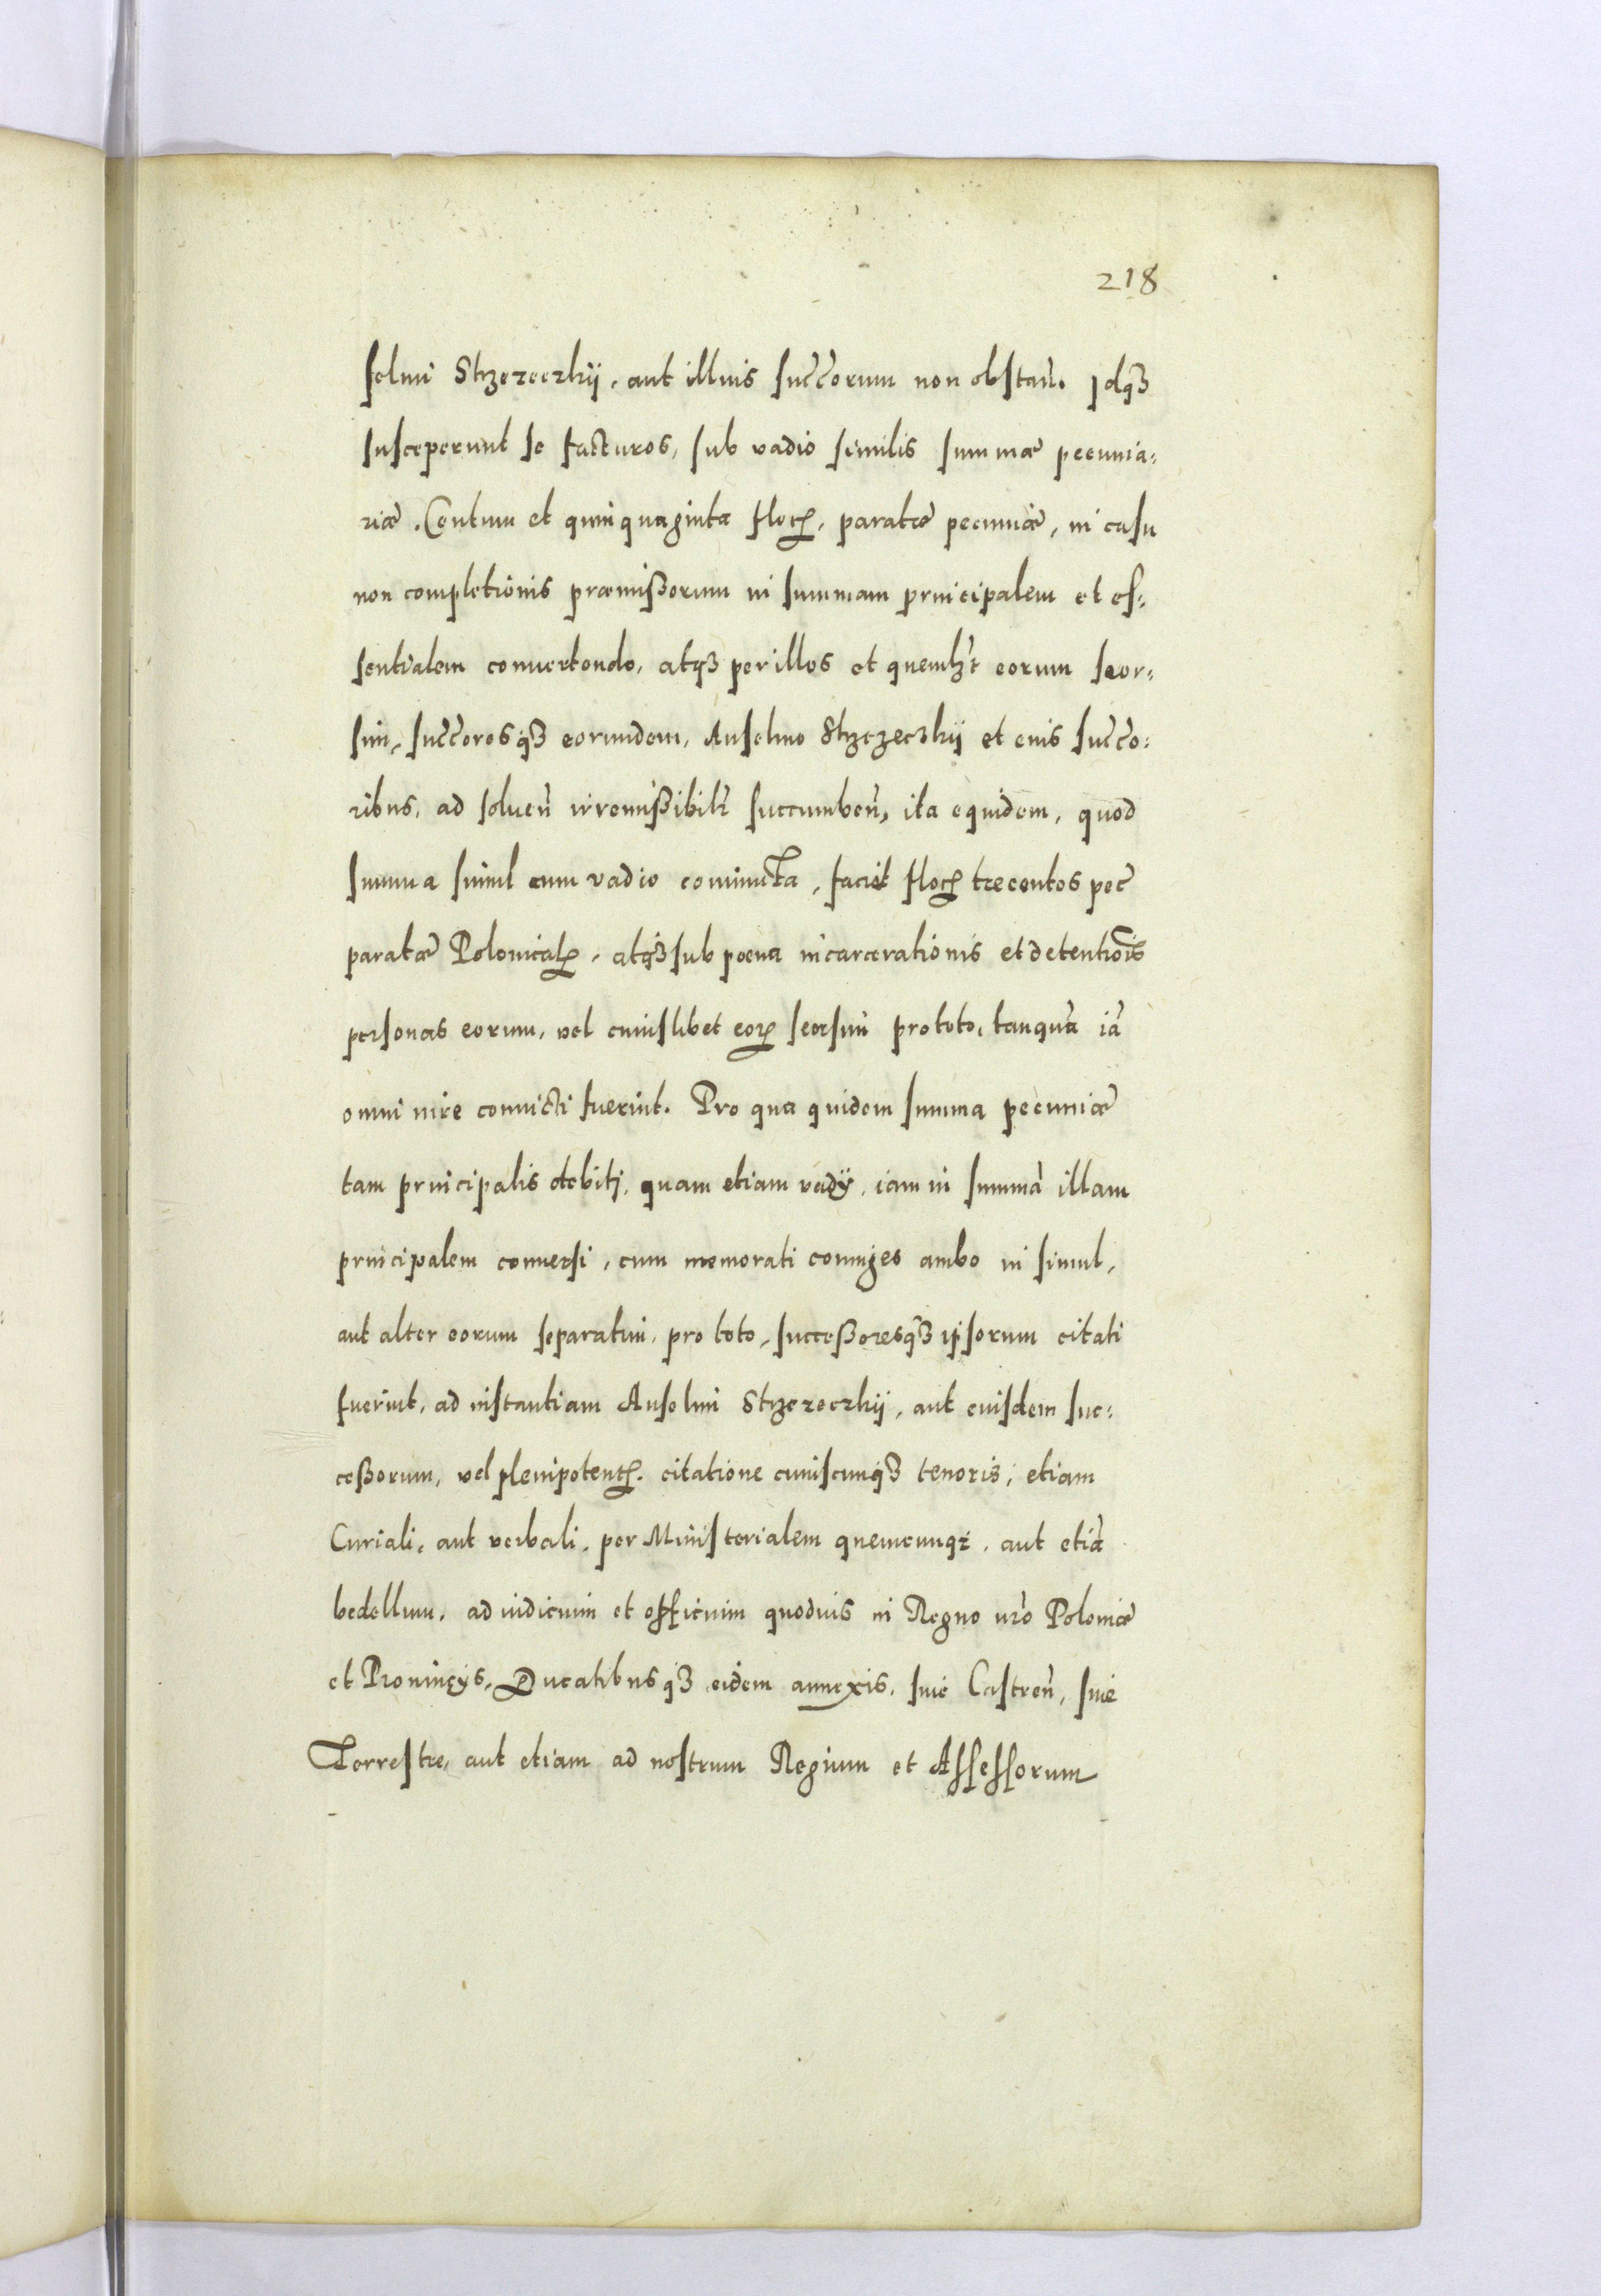 218
selmi Strzezeczkij, aut illius succ̃orum non obstañ. Idq3
susceperunt se facturos, sub vadio similis summæ pecunia:
riæ. Centum et quinquaginta floꝝ, paratæ pecuniæ, in casu
non completionis præmissorum in summam principalem et es:
sentialem conuertendo, atq3 per illos et quemlꝫt eorum seor:
sim, succ̃oresq3 eorundem, Anselmo Strzezeczkij et eius succ̃o:
ribus, ad soluen̄ irremissibilr̃ succumben̄, ita equidem, quod
summa simul cum vadio coniuncta, faciet floꝝ trecentos pec̃
paratæ Polonicaꝝ, atq3 sub poena incarcerationis et detentiois̃
personas eorum, vel cuiuslibet eoꝝ seorsim pro toto, tanquã iã
omni iure conuicti fuerint. Pro qua quidem summa pecuniæ
tam principalis debitj, quam etiam vadÿ, iam in summã illam
principalem conuersi, cum memorati coniuges ambo in simul,
aut alter eorum separatim, pro toto, successoresq3 ipsorum citati
fuerint, ad instantiam Anselmi Strzezeczkij, aut eiusdem suc:
cessorum, vel plenipotenꝝ. citatione cuiuscunq3 tenoris, etiam
Curiali, aut verbali, per Ministerialem quemcunqꝫ, aut etiã
bedellum, ad iudicium et officium quoduis in Regno nr̃o Poloniæ
et Prouincÿs, Ducatibusq3 eidem annexis, siue Castren̄, siue
Terrestre, aut etiam ad nostrum Regium et Assessorum